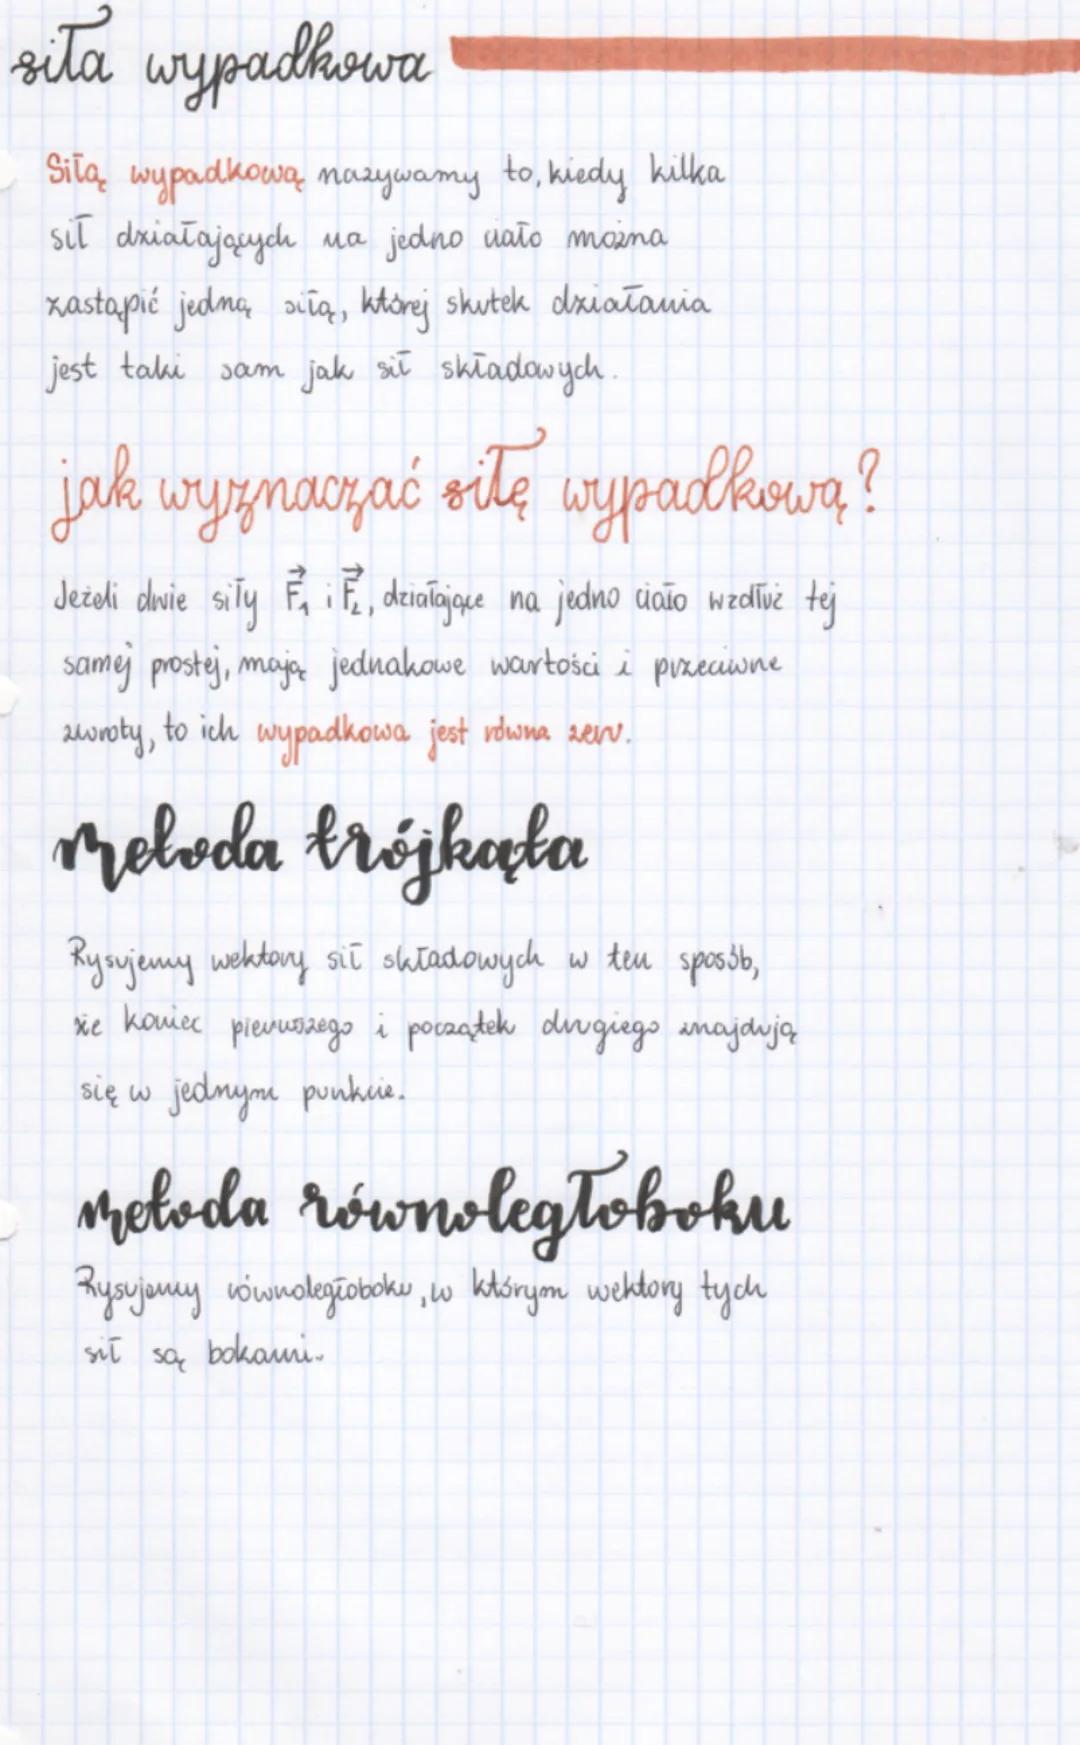 siła wypadkowa
Siłą wypadkową nazywamy to, kiedy kilka
sił działających na jedno ciało można
zastąpić jedną siłą, której skutek działania
jest taki sam jak sił składowych.
jak wyznaczać siłę wypadkową?
Jeżeli dwie siły F₁ i F₂, działające na jedno ciało wzdłuż tej
samej prostej, mają jednakowe wartości i przeciwne
zwroty, to ich wypadkowa jest równa zeru.
metoda trójkąta
Rysujemy wektory sił składowych w ten sposób,
że koniec pierwszego i początek drugiego znajdują
się w jednym punkcie.
metoda równoległoboku
Rysujemy równoległoboku, w którym wektory tych
sił są bokami.